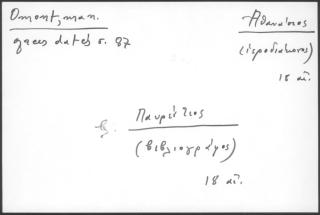 Omont, man.
grecs datés σ. 87
Ἀθανάσιος
(ἱεροδιάκονος)
18 αἰ.
Λαυρέντιος
(βιβλιογράφος)
18 αἰ.